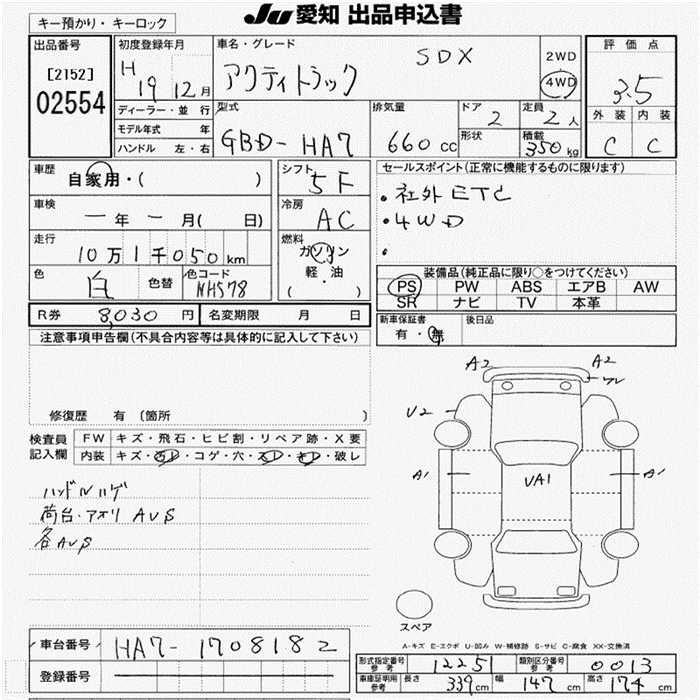 JU 愛知 出品申込書
キー預かり・キーロック
出品番号
[2152]
02554
初度登録年月
H 19 12月
ディーラー・並 行
モデル年式 年
ハンドル 左・右
車名・グレード
アクティトラック SDX
2WD
4WD
評 価 点
3.5
外 装 内 装
C C
型式
GBD-HA7
排気量
660cc
ドア
2
定員
2人
形状
積載
350kg
車歴
自家用・( )
シフト
5F
車検
一年一月( 日)
冷房
AC
走行
10万1千050km
燃料
ガソリン
軽・油
( )
色
白
色替
色コード
NH578
R券 8,030円 名変期限 月 日
セールスポイント(正常に機能するものに限ります)
・社外ETC
・4WD
・
装備品(純正品に限り○をつけてください)
PS PW ABS エアB AW
SR ナビ TV 本革
新車保証書
有・無
後日品
注意事項申告欄(不具合内容等は具体的に記入して下さい)
修復歴 有(箇所 )
検査員
記入欄
FW キズ・飛石・ヒビ割・リペア跡・X要
内装 キズ・汚レ・コゲ・穴・スレ・キレ・破レ
ハンドルハゲ
荷台・アオリ AUS
各AUS
A2 A2
U2
A1 UA1 A1
スペア
A-キズ E-エクボ U-凹み W-補修跡 S-サビ C-腐食 XX-交換済
車台番号 HA7-1708182
登録番号
形式指定番号 参考 12251 類別区分番号 参考 0013
車庫証明用 参考 長さ 339cm 幅 147cm 高さ 174cm